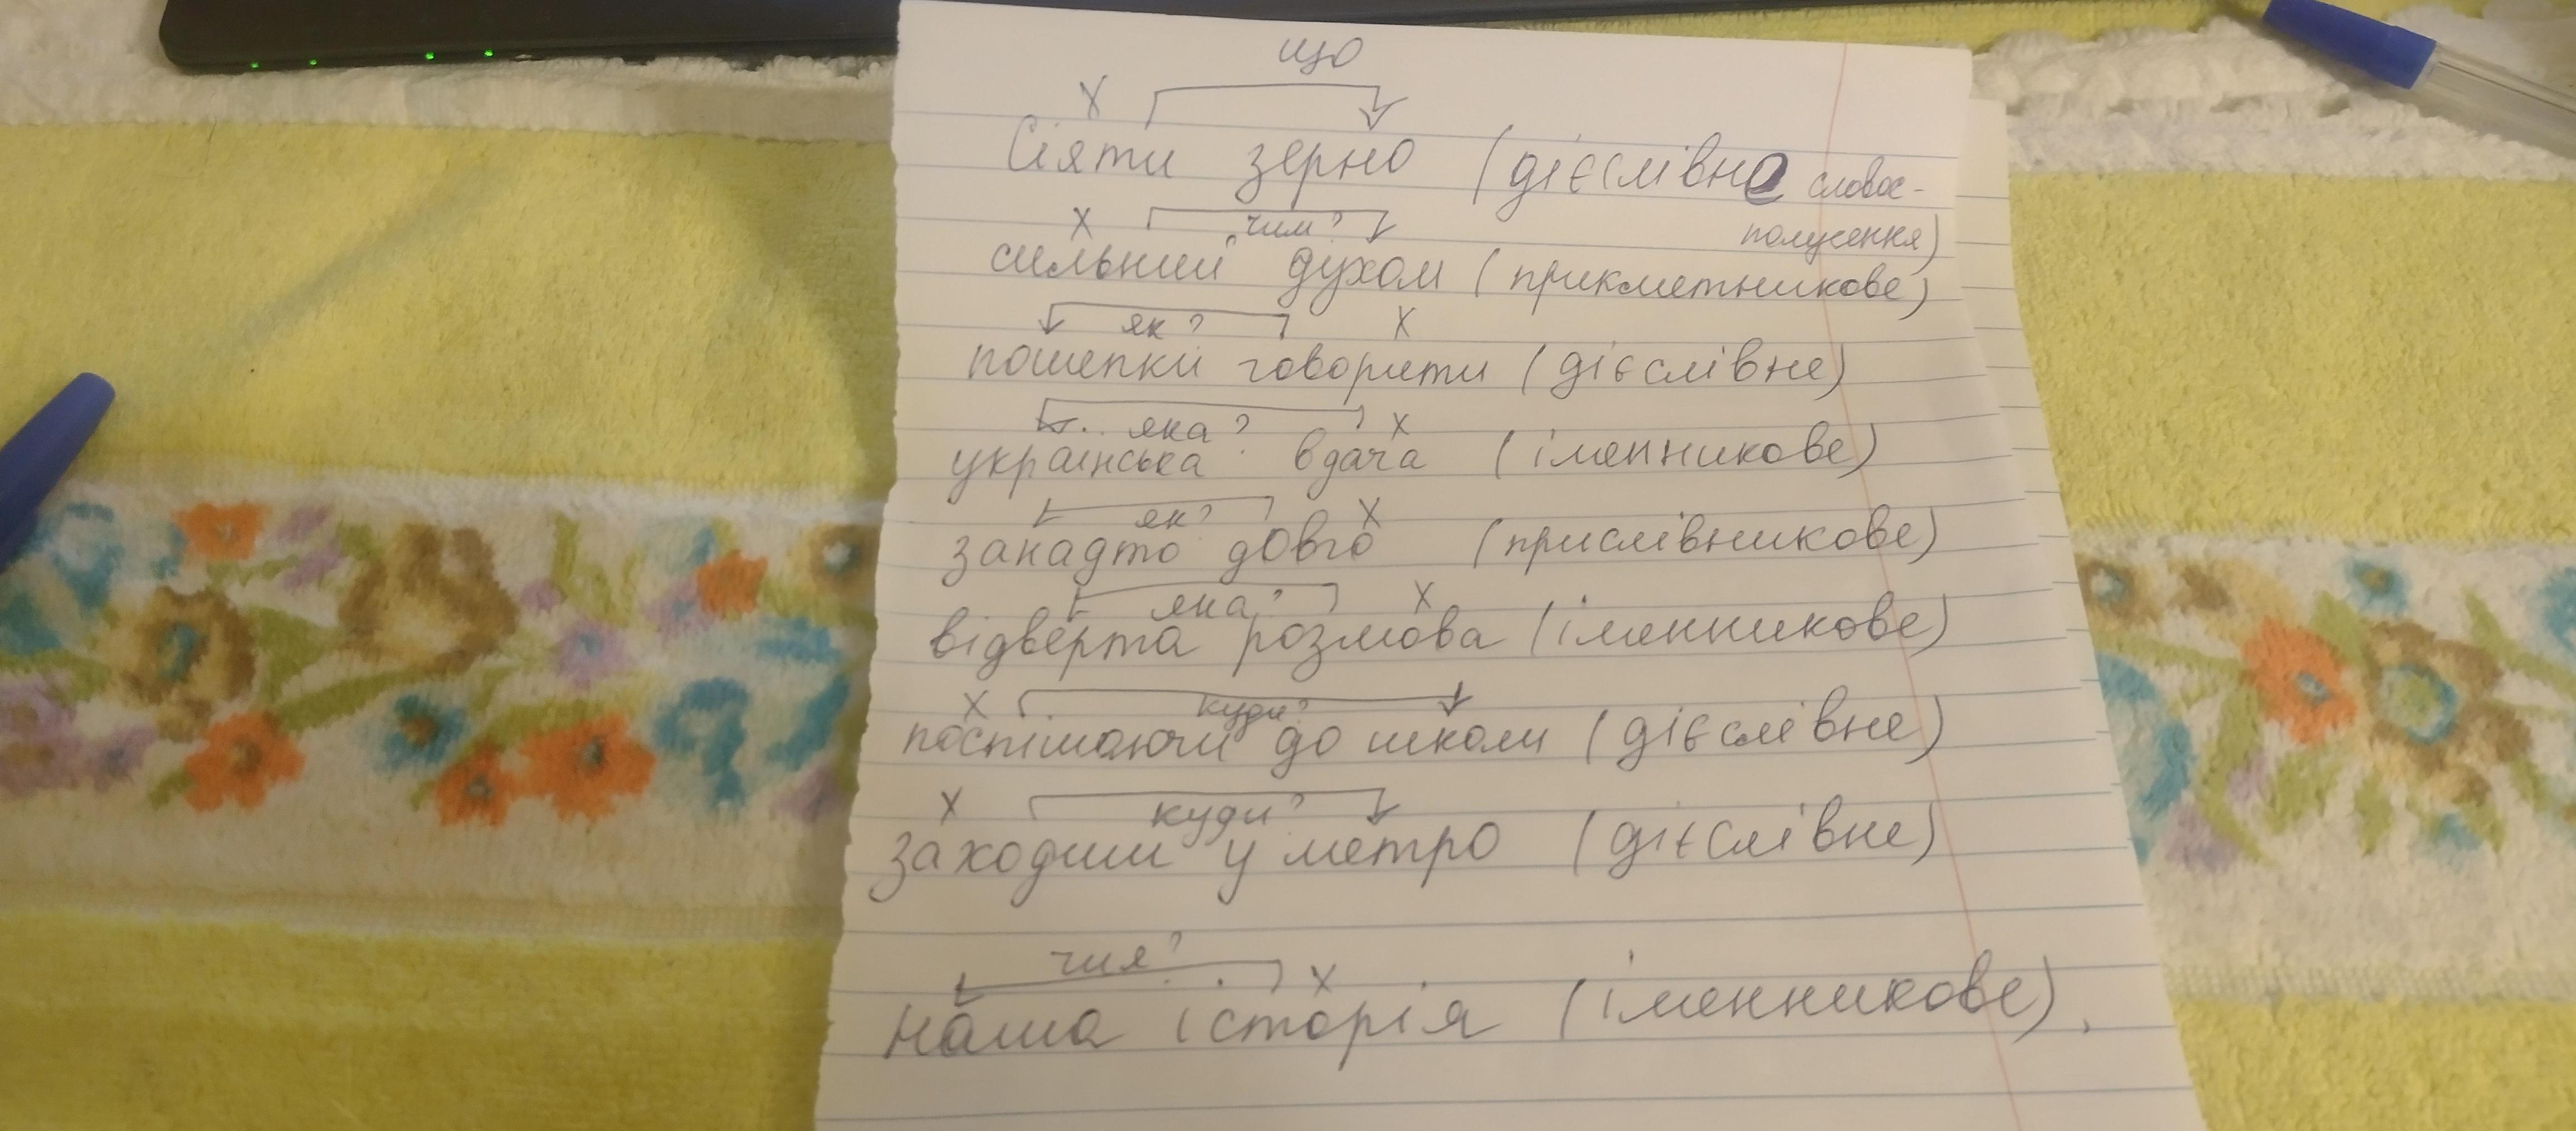 що
х
Сіяти зерно (дієслівне словос-
полусення)
х чим?
сильний духом (прикметникове)
як? х
пошепки говорити (дієслівне)
яка? х
українська вдача (іменникове)
як? х
занадто довго (прислівникове)
яка? х
відверта розмова (іменникове)
х куди?
поспішаючи до школи (дієслівне)
х куди?
заходим у метро (дієслівне)
чия? х
наша історія (іменникове).